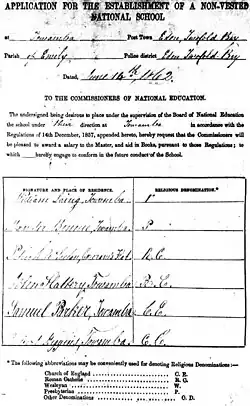 APPLICATION FOR THE ESTABLISHMENT OF A NON-VESTED
NATIONAL SCHOOL
at Towamba Post Town Eden, Twofold Bay
Parish of Emily Police district Eden Twofold Bay
Dated, June 14th 1862.
TO THE COMMISSIONERS OF NATIONAL EDUCATION.
The undersigned being desirous to place under the supervision of the Board of National Education
the school under their direction at Towamba in accordance with the
Regulations of 14th December, 1857, appended hereto, hereby request that the Commissioners will
be pleased to award a salary to the Master, and aid in Books, pursuant to those Regulations; to
which hereby engage to conform in the future conduct of the School.
SIGNATURE AND PLACE OF RESIDENCE. RELIGIOUS DENOMINATION.*
William Laing, Towamba P
Towamba P
R.C.
Towamba R.C.
Samuel Parker, Towamba C.E.
Towamba C.E.
* The following abbreviations may be conveniently used for denoting Religious Denominations:—
Church of England C. E.
Roman Catholic R. C.
Wesleyan W.
Presbyterian P.
Other Denominations O. D.